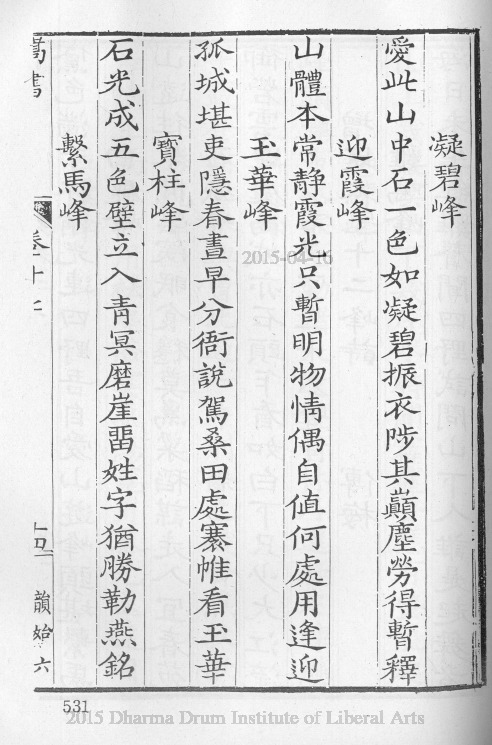 凝碧峰
愛此山中石一色如凝碧振衣陟其顚塵勞得暫釋
迎霞峰
山體本常静霞光只暫明物情偶自值何處用逢迎
玉華峰
孤城堪吏隱春晝早分衙說駕桑田處褰帷看玉華
寶柱峰
石光成五色壁立入青冥磨崖畱姓字猶勝勒燕銘
繫馬峰
嵩書
卷十七
韻始六
2015-04-16
531
2015 Dharma Drum Institute of Liberal Arts